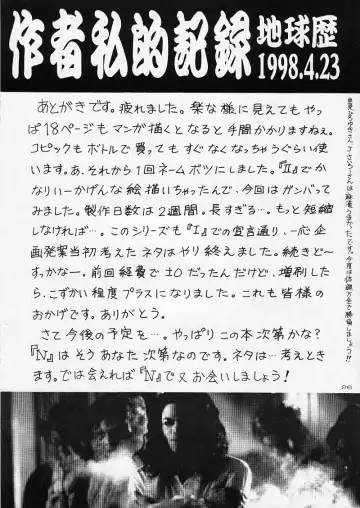 作者私的記録
地球歴
1998.4.23
あとがきです。疲れました。楽な様に見えてもやっ
ぱ18ページもマンガ描くとなると手間かかりますねぇ。
コピックもボトルで買ってもすぐなくなっちゃうぐらい使
います。あ、それから1回ネームボツにしました。『Ⅱ』でか
なりいーかげんな絵描いちゃったんで、今回はガンバって
みました。製作日数は2週間。長すぎる…。もっと短縮
しなければ…。このシリーズも『Ⅰ』での宣言通り、一応企
画発案当初考えたネタはやり終えました。続きど〜
すっかなー。前回経費で±0だったんだけど、増刷した
ら、こずかい程度プラスになりました。これも皆様の
おかげです。ありがとう。
さて今後の予定を…。やっぱりこの本次第かな?
『N』はそうあなた次第なのです。ネタは…考えとき
ます。では会えれば『N』で又お会いしましょう!
26